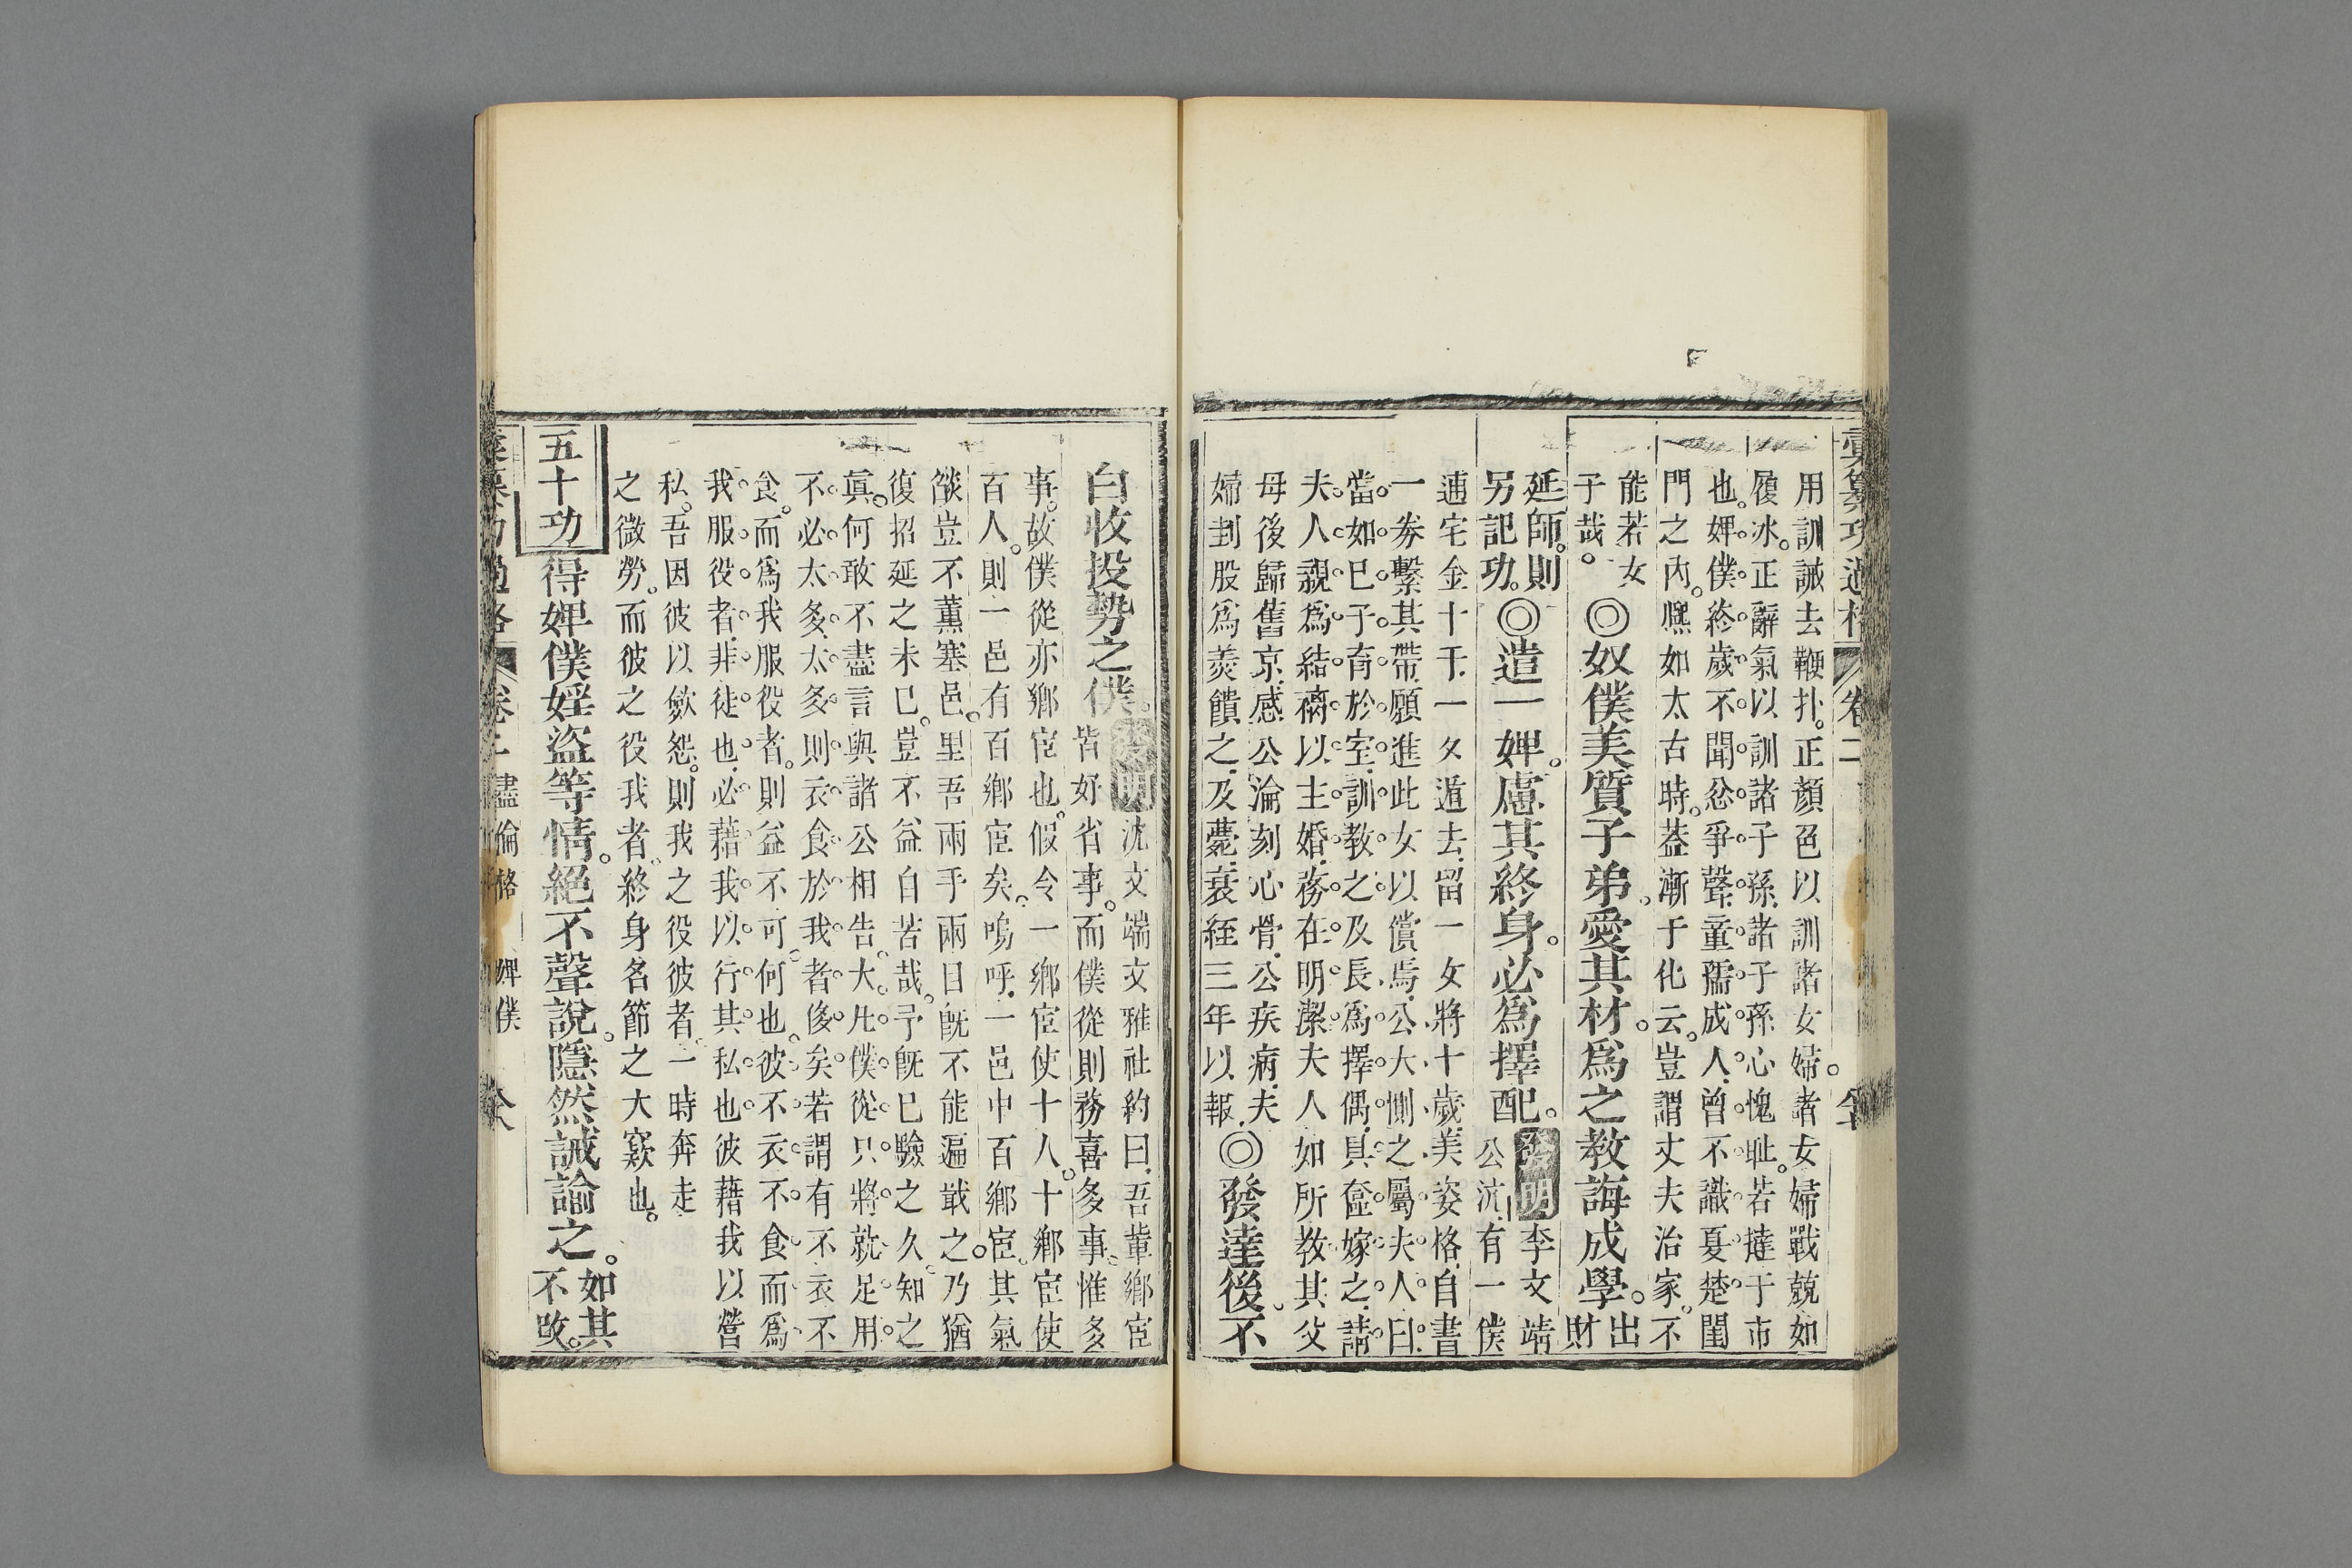 彙纂功過格 卷二
用訓誡去鞭扑。正顏色以訓諸女婦。諸女婦戰兢如
履冰。正辭氣以訓諸子孫。諸子孫心愧恥。若撻于市
也。婢僕終歲不聞忿爭聲。童孺成人。曾不識夏楚。閨
門之內。熈如太古時。葢漸于化云。豈謂丈夫治家。不
能若女
子哉。
◎奴僕美質子弟。愛其材。為之教誨成學。
出財
延師。則
另記功。
◎遣一婢。慮其終身。必為擇配。
發明
李文靖
公沆。有一僕
逋宅金十千。一夕遁去。留一女將十歲。美姿格。自書
一券繫其帶。願進此女以償焉。公大惻之。屬夫人曰。
當如己子育於室。訓教之。及長。為擇偶。具奩嫁之。請
夫人親為結褵。以主婚。務在明潔。夫人如所教。其父
母後歸舊京。感公淪刻心骨。公疾病。夫
婦刲股為羹饋之。及薨。衰絰三年以報。
◎發達後。不
白收投勢之僕。
發明
沈文端文雅社約曰。吾輩鄉宦
皆好省事。而僕從則務喜多事。惟多
事。故僕從亦鄉宦也。假令一鄉宦使十人。十鄉宦使
百人。則一邑有百鄉宦矣。嗚呼。一邑中百鄉宦。其氣
燄豈不薰塞邑里。吾兩手兩目旣不能遍戢之。乃猶
復招延之未已。豈不益自苦哉。予旣已驗之久。知之
眞。何敢不盡言與諸公相告。大凡僕從。只將就足用。
不必太多。太多則衣食於我者侈矣。若謂有不衣不
食。而為我服役者。則益不可。何也。彼不衣不食而為
我服役者。非徒也。必藉我以行其私也。彼藉我以營
私。吾因彼以斂怨。則我之役彼者。一時奔走
之微勞。而彼之役我者。終身名節之大窾也。
五十功
得婢僕婬盜等情。絕不聲說。隱然誡諭之。
如其
不改。
卷二 盡倫格 婢僕